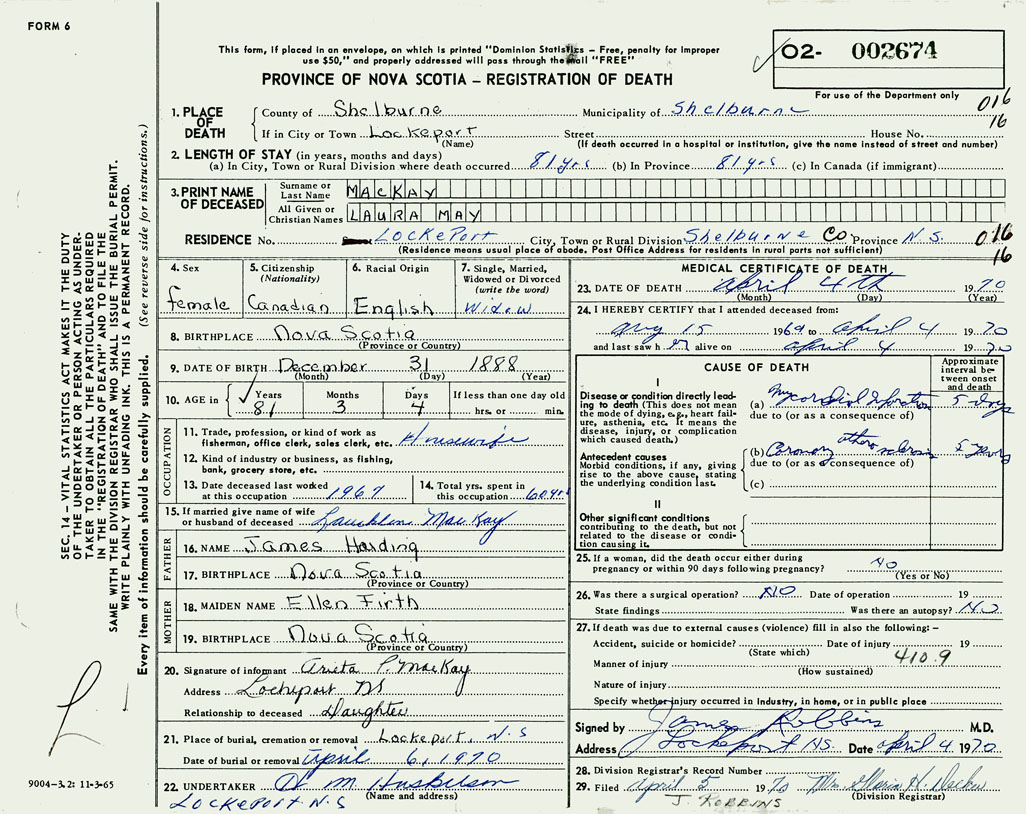 FORM 6
This form, if placed in an envelope, on which is printed "Dominion Statistics – Free, penalty for improper
use $50," and properly addressed will pass through the mail "FREE"
PROVINCE OF NOVA SCOTIA – REGISTRATION OF DEATH
02- 002674
For use of the Department only
016
16
1. PLACE OF DEATH
County of Shelburne Municipality of Shelburne
If in City or Town Lockeport Street House No.
(Name) (If death occurred in a hospital or institution, give the name instead of street and number)
2. LENGTH OF STAY (in years, months and days)
(a) In City, Town or Rural Division where death occurred 81 yrs (b) In Province 81 yrs (c) In Canada (if immigrant)
3. PRINT NAME OF DECEASED
Surname or Last Name MACKAY
All Given or Christian Names LAURA MAY
RESIDENCE No. LOCKEPORT City, Town or Rural Division Shelburne Co Province N.S. 016
16
(Residence means usual place of abode. Post Office Address for residents in rural parts not sufficient)
4. Sex
female
5. Citizenship (Nationality)
Canadian
6. Racial Origin
English
7. Single, Married, Widowed or Divorced (write the word)
Widow
8. BIRTHPLACE Nova Scotia
(Province or Country)
9. DATE OF BIRTH December 31 1888
(Month) (Day) (Year)
10. AGE in Years Months Days If less than one day old
81 3 4 hrs. or min.
OCCUPATION
11. Trade, profession, or kind of work as
fisherman, office clerk, sales clerk, etc. Housewife
12. Kind of industry or business, as fishing,
bank, grocery store, etc.
13. Date deceased last worked at this occupation 1967
14. Total yrs. spent in this occupation 60 yrs
15. If married give name of wife
or husband of deceased Lauchlin MacKay
FATHER
16. NAME James Harding
17. BIRTHPLACE Nova Scotia
(Province or Country)
MOTHER
18. MAIDEN NAME Ellen Firth
19. BIRTHPLACE Nova Scotia
(Province or Country)
20. Signature of informant P. MacKay
Address Lockeport NS
Relationship to deceased Daughter
21. Place of burial, cremation or removal Lockeport, N.S
Date of burial or removal April 6, 1970
22. UNDERTAKER M.
(Name and address)
LOCKEPORT N.S
MEDICAL CERTIFICATE OF DEATH
23. DATE OF DEATH April 4th 1970
(Month) (Day) (Year)
24. I HEREBY CERTIFY that I attended deceased from:
Aug 15 1969 to April 4 1970
and last saw her alive on April 4 1970
CAUSE OF DEATH
Approximate interval between onset and death
I
Disease or condition directly leading to death (This does not mean the mode of dying, e.g., heart failure, asthenia, etc. It means the disease, injury, or complication which caused death.)
(a) Myocardial Infarction 5 days
due to (or as a consequence of)
Antecedent causes
Morbid conditions, if any, giving rise to the above cause, stating the underlying condition last.
(b) Coronary atherosclerosis 5 years
due to (or as a consequence of)
(c)
II
Other significant conditions
contributing to the death, but not related to the disease or condition causing it.
25. If a woman, did the death occur either during
pregnancy or within 90 days following pregnancy? NO
(Yes or No)
26. Was there a surgical operation? NO Date of operation 19
State findings Was there an autopsy? NO
27. If death was due to external causes (violence) fill in also the following: –
Accident, suicide or homicide? Date of injury 19
(State which) 410.9
Manner of injury
(How sustained)
Nature of injury
Specify whether injury occurred in industry, in home, or in public place
Signed by James Robbins M.D.
Address Lockeport NS. Date April 4 1970
28. Division Registrar's Record Number
29. Filed April 5 1970 Mrs. H.
(Division Registrar)
J. ROBBINS
SEC. 14 – VITAL STATISTICS ACT MAKES IT THE DUTY
OF THE UNDERTAKER OR PERSON ACTING AS UNDER-
TAKER TO OBTAIN ALL THE PARTICULARS REQUIRED
IN THE "REGISTRATION OF DEATH" AND TO FILE THE
SAME WITH THE DIVISION REGISTRAR WHO SHALL ISSUE THE BURIAL PERMIT.
WRITE PLAINLY WITH UNFADING INK. THIS IS A PERMANENT RECORD.
Every item of information should be carefully supplied. (See reverse side for instructions.)
9004-3.2: 11-3-65